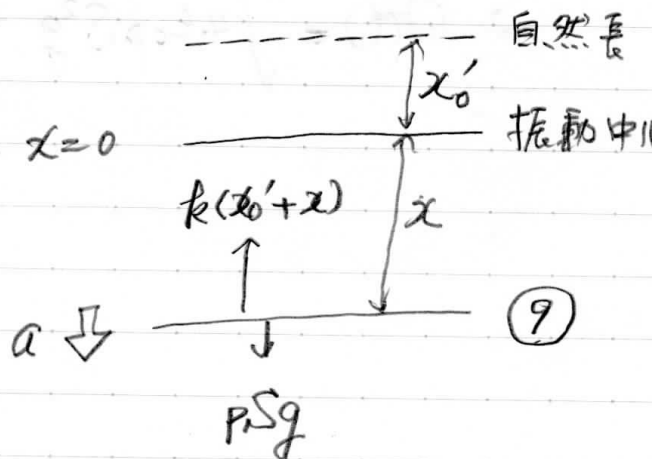 自然長
x₀′
x=0
振動中心
k(x₀′+x)
x
a
⑨
ρSg